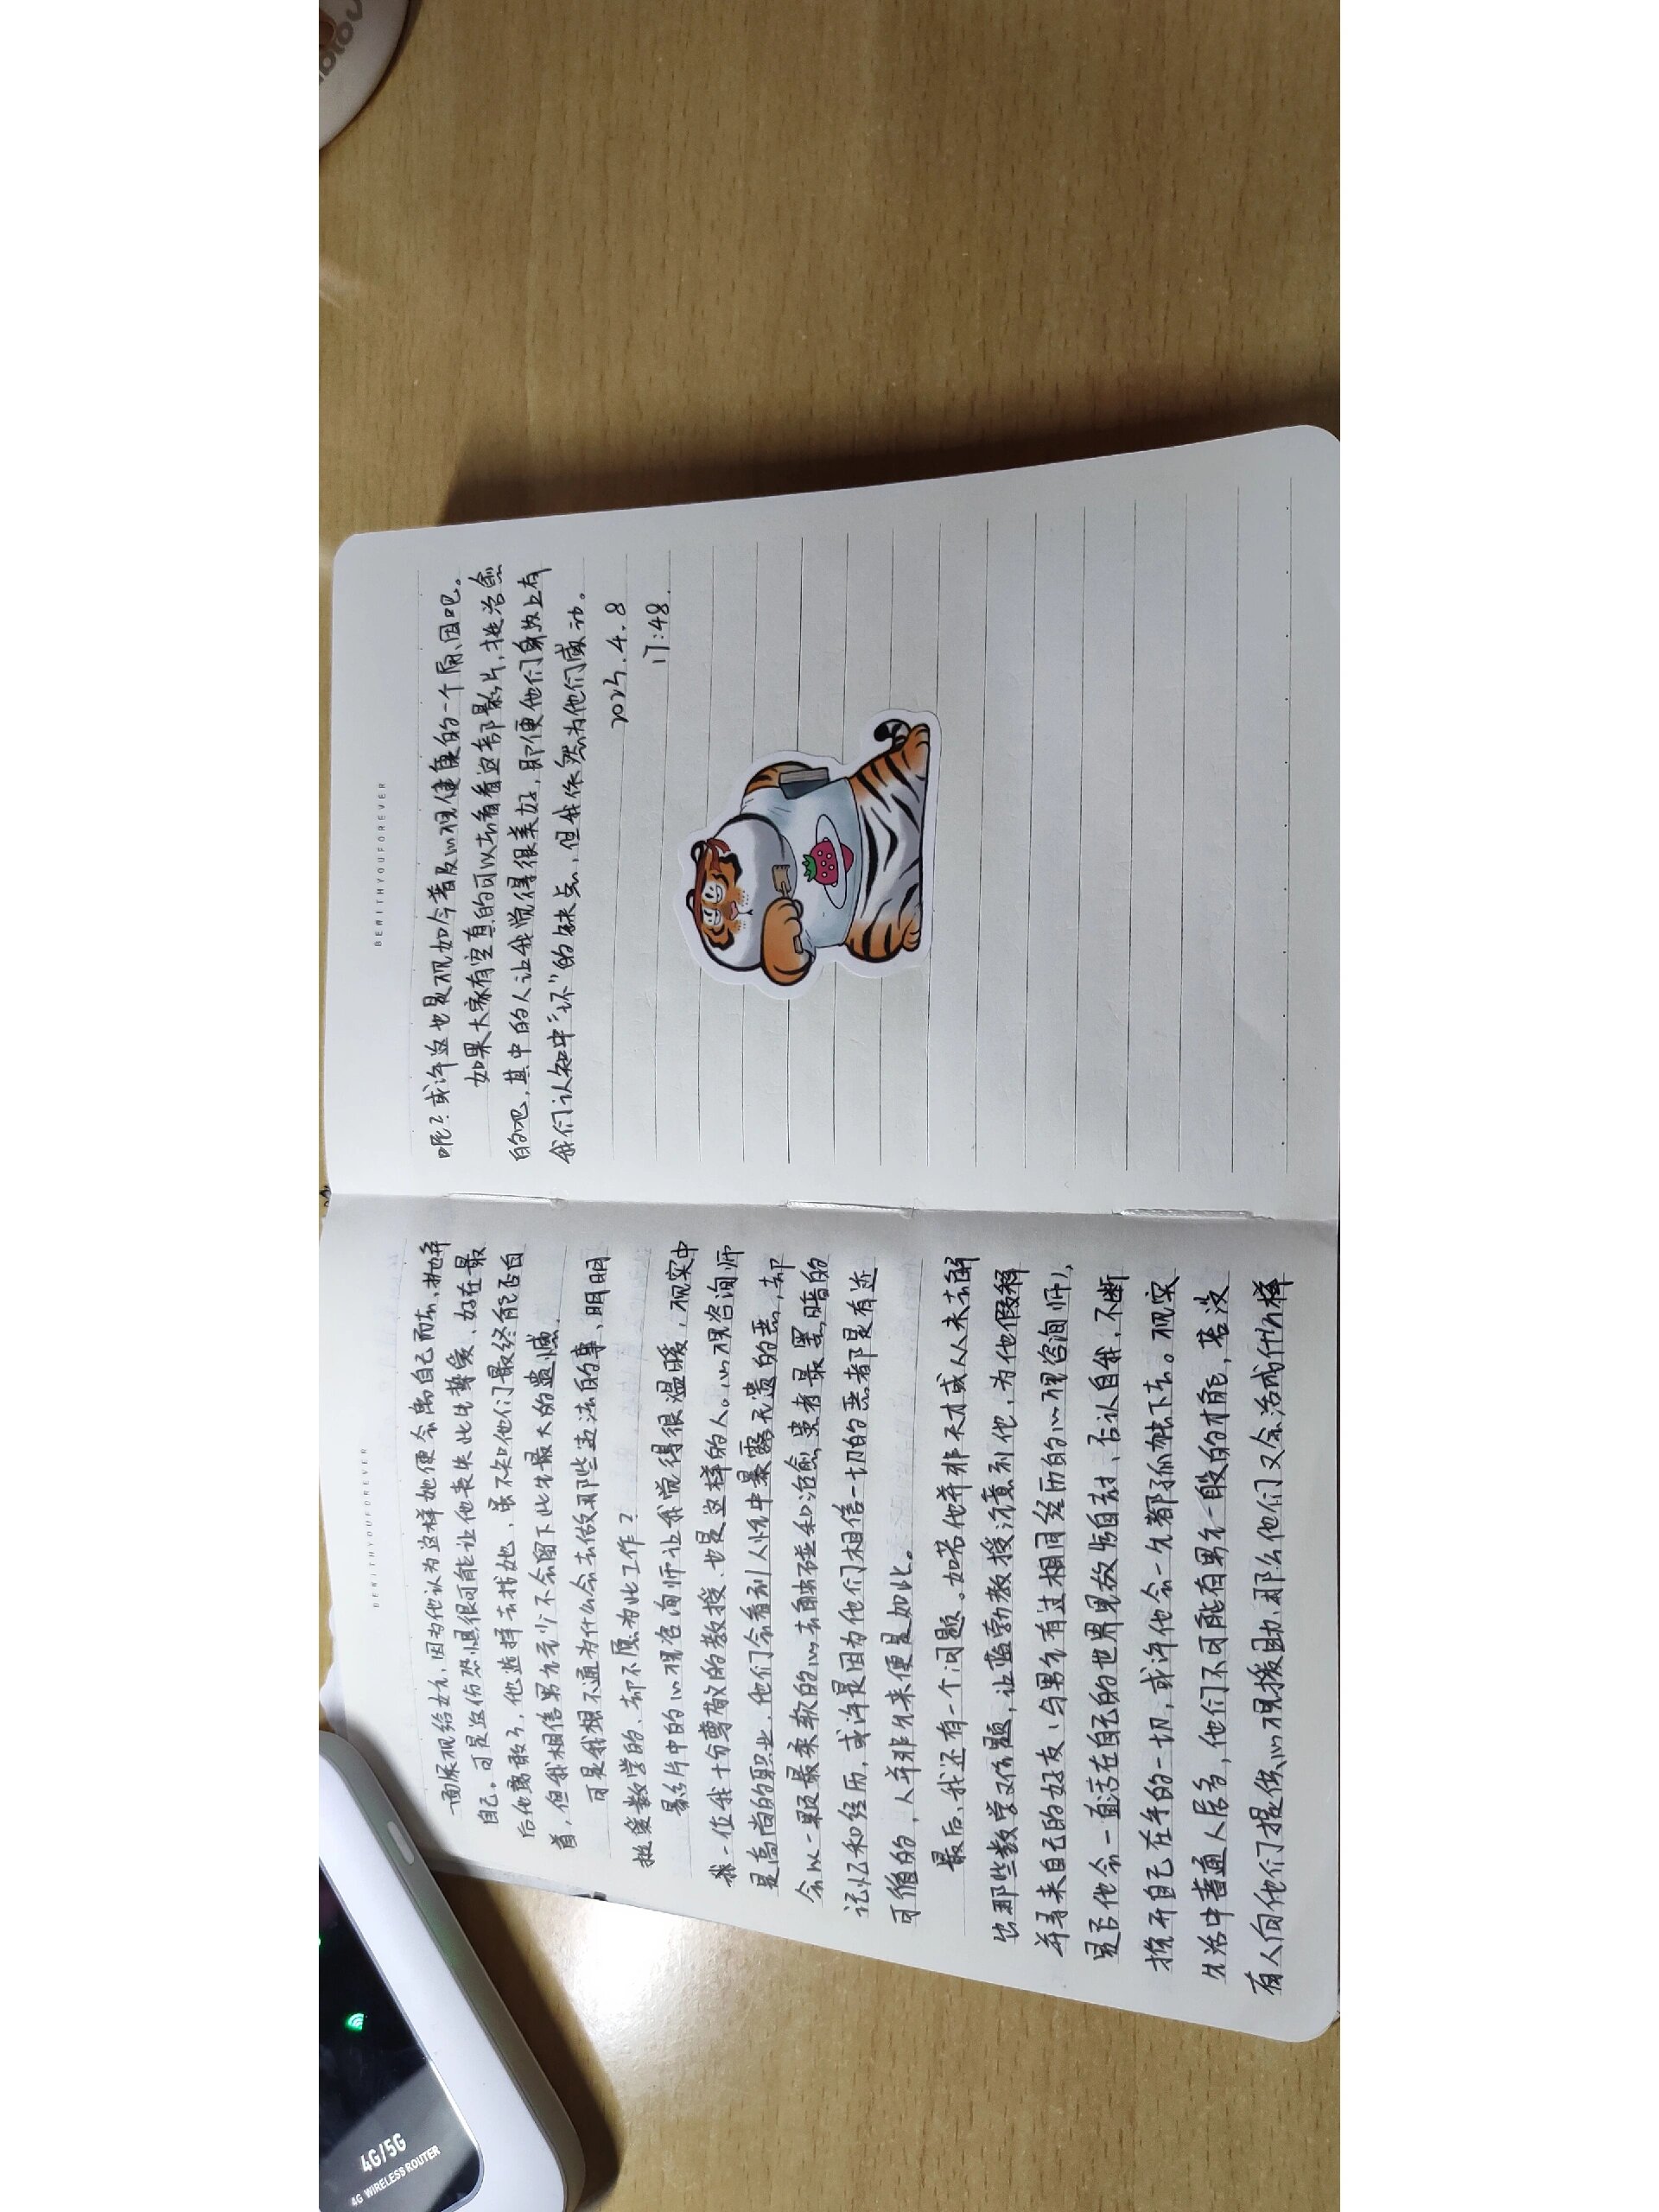 BEWITHYOUFOREVER
面展现给女主,因为他认为这样她便会离自己而去、抛弃
自己。可是这份恐惧很可能让他丧失此生挚爱、好在最
后他勇敢了,他选择去找她,虽不知他们最终能否白
首,但我相信男主至少不会留下此生最大的遗憾。
可是我想不通为什么会去做那些违法的事、明明
挺爱数学的、却不愿为此工作?
影片中的心理咨询师让我觉得很温暖,现实中
我一位我十分尊敬的教授、也是这样的人。心理咨询师
是高尚的职业,他们会看到人性中暴露无遗的恶,却
会以一颗最柔软的心去触碰和治愈患者最黑暗的
记忆和经历,或许是因为他们相信一切的恶都是有迹
可循的,人并非生来便是如此。
最后,我还有一个问题。如若他并非天才或从未去解
出那些数学难题,让蓝勃教授注意到他,为他假释
并寻来自己的好友、与男主有过相同经历的心理咨询师),
是否他会一直活在自己的世界里放逐自己、否认自我,不断
推开自己在乎的一切,或许他会一生都孤独下去。现实
生活中普通人居多,他们不可能有男主一般的才能,若没
有人向他们提供心理援助、那么他们又会活成什么样
BEWITHYOUFOREVER
呢?或许这也是现如今普及心理健康的一个原因吧。
如果大家有空真的可以去看看这部影片,挺治愈
的吧,其中的人让我觉得很美好,即便他们身上有
我们认知中“坏”的缺点,但我依然为他们感动。
2025.4.8
17:48.
4G/5G
4G WIRELESS ROUTER